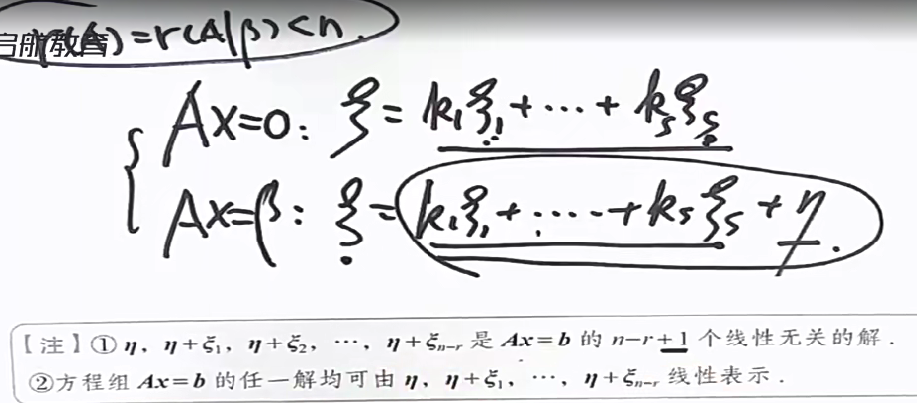 启航教育
r(A)=r(A|β)<n.
Ax=0: ξ=k₁ξ₁+···+kₛξₛ
Ax=β: ξ=k₁ξ₁+····+kₛξₛ+η.
【注】① η, η+ξ₁, η+ξ₂, ···, η+ξₙ₋ᵣ 是 Ax=b 的 n-r+1 个线性无关的解.
②方程组 Ax=b 的任一解均可由 η, η+ξ₁, ···, η+ξₙ₋ᵣ 线性表示.